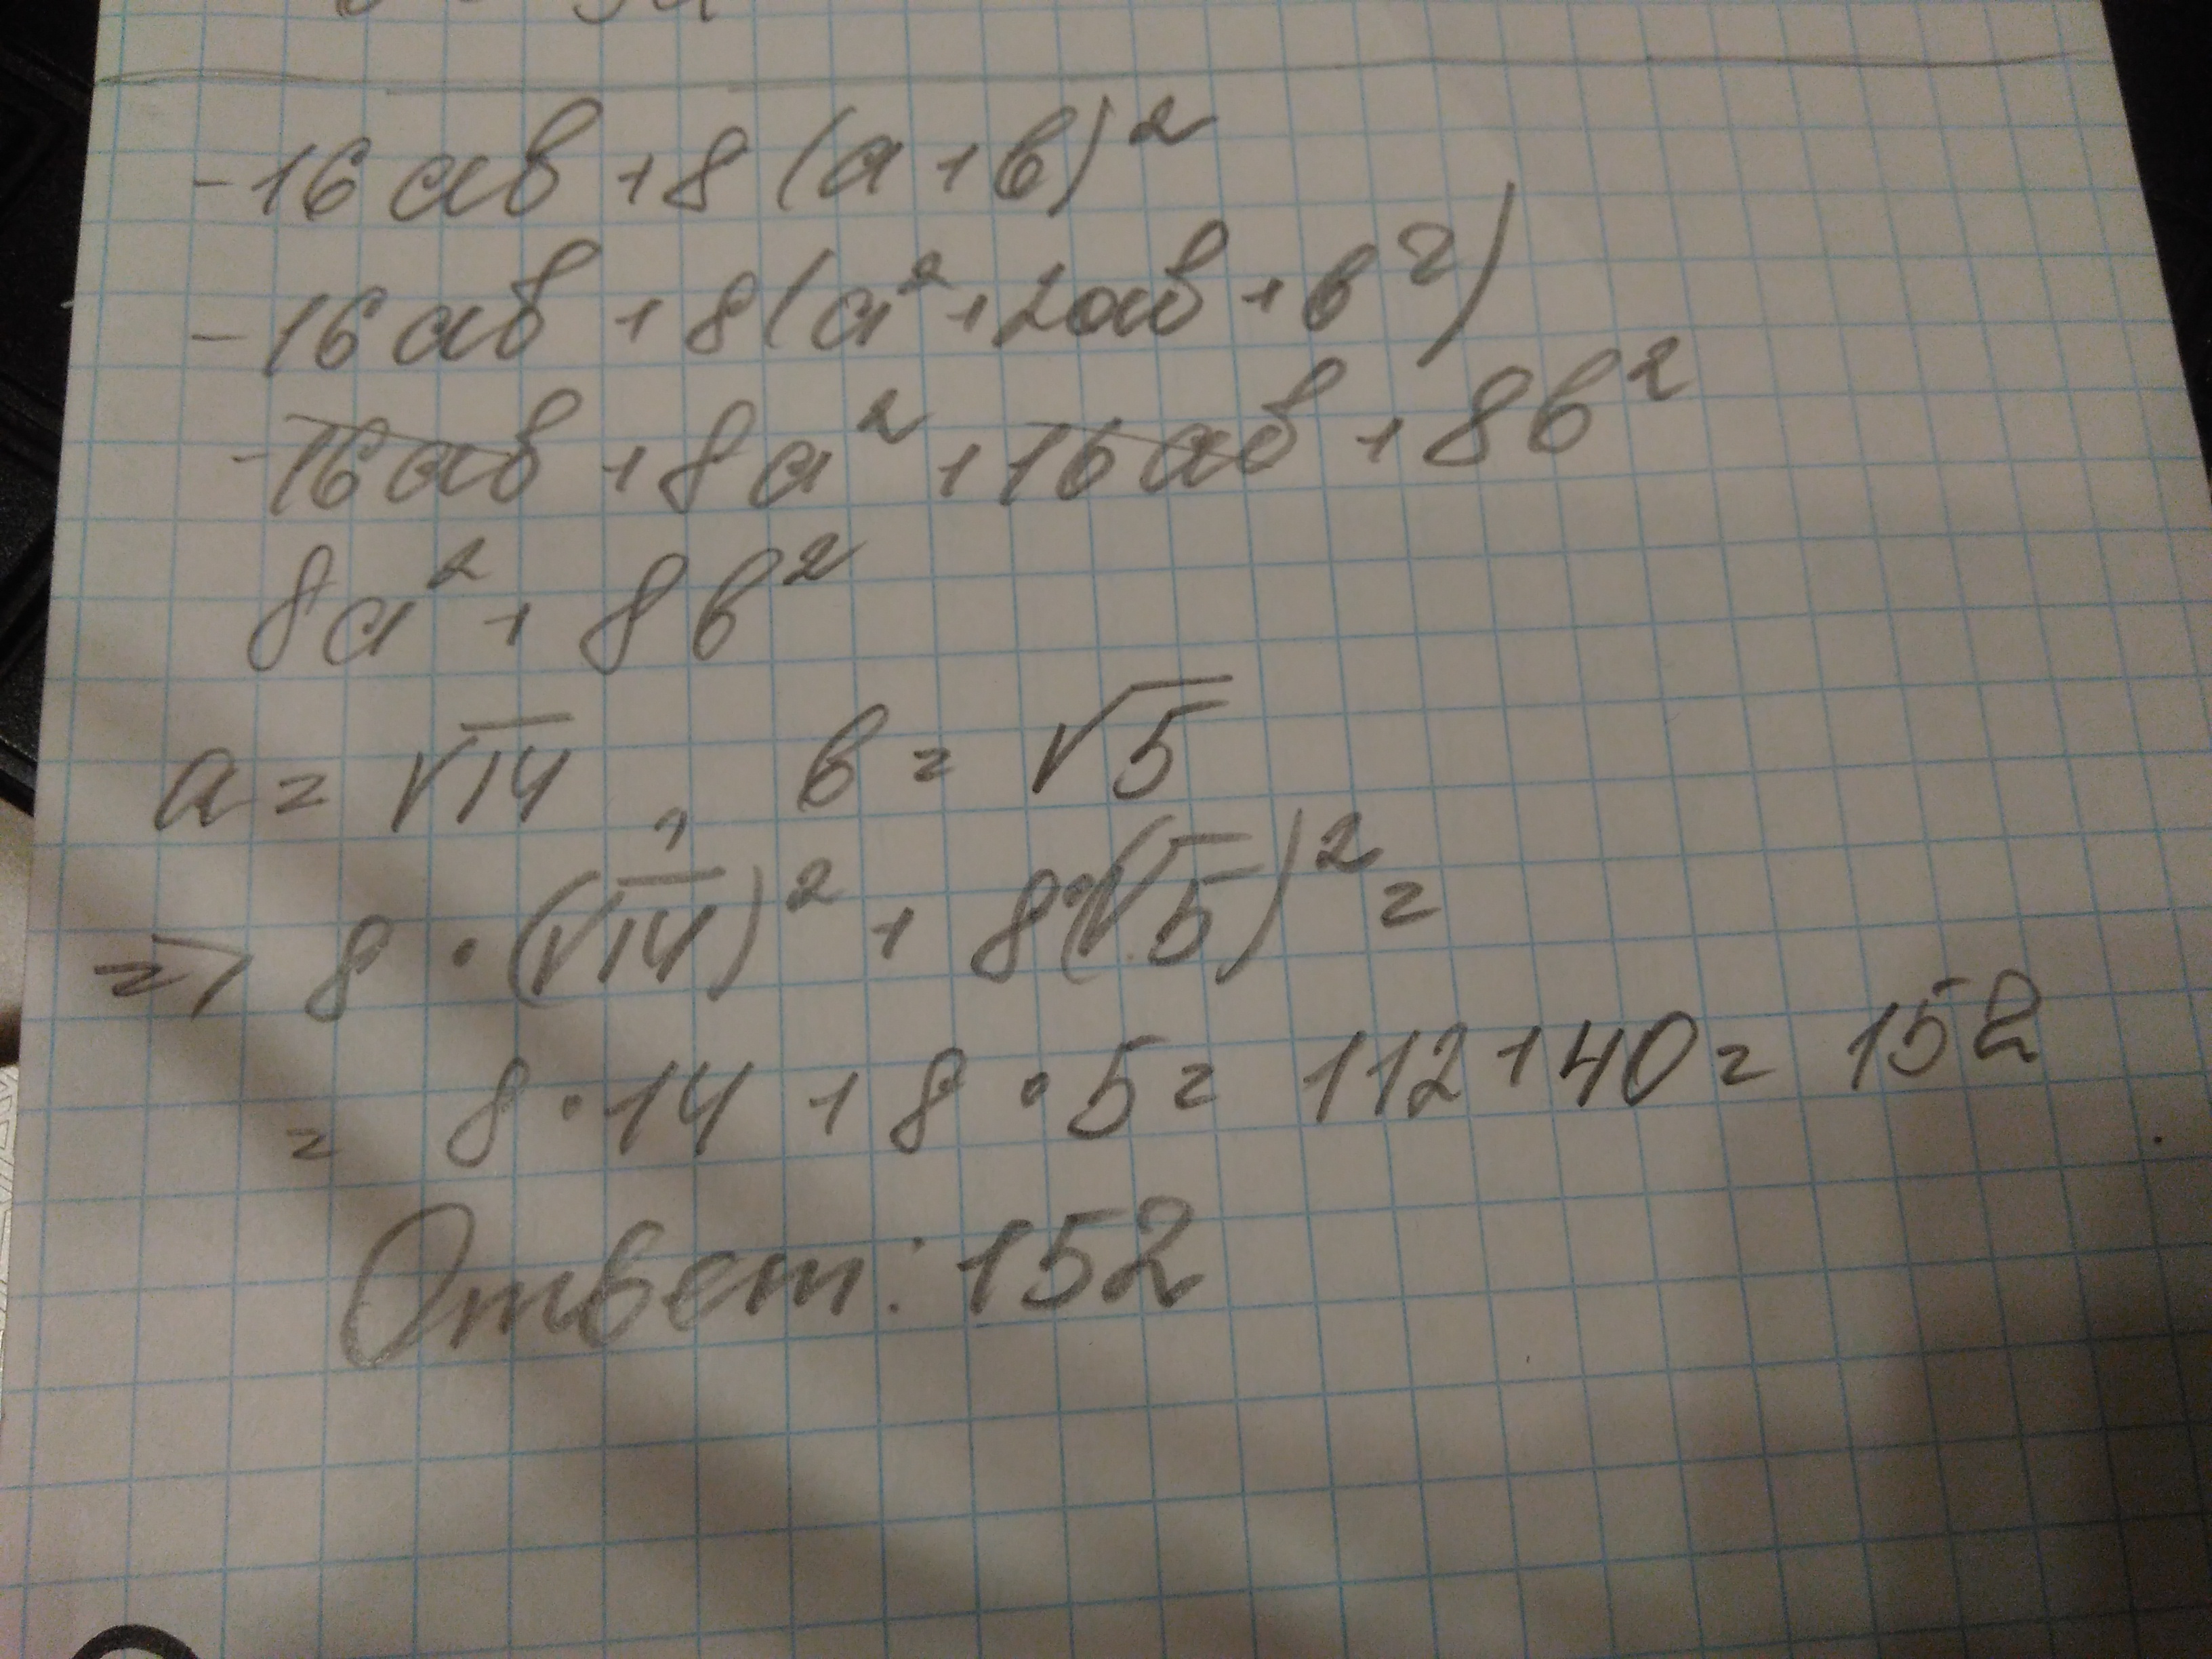 -16ab + 8(a+b)²
-16ab + 8(a²+2ab+b²)
-16ab + 8a² + 16ab + 8b²
8a² + 8b²
a = √14, b = √5
=> 8 · (√14)² + 8·(√5)² =
= 8·14 + 8·5 = 112+40 = 152
Ответ: 152